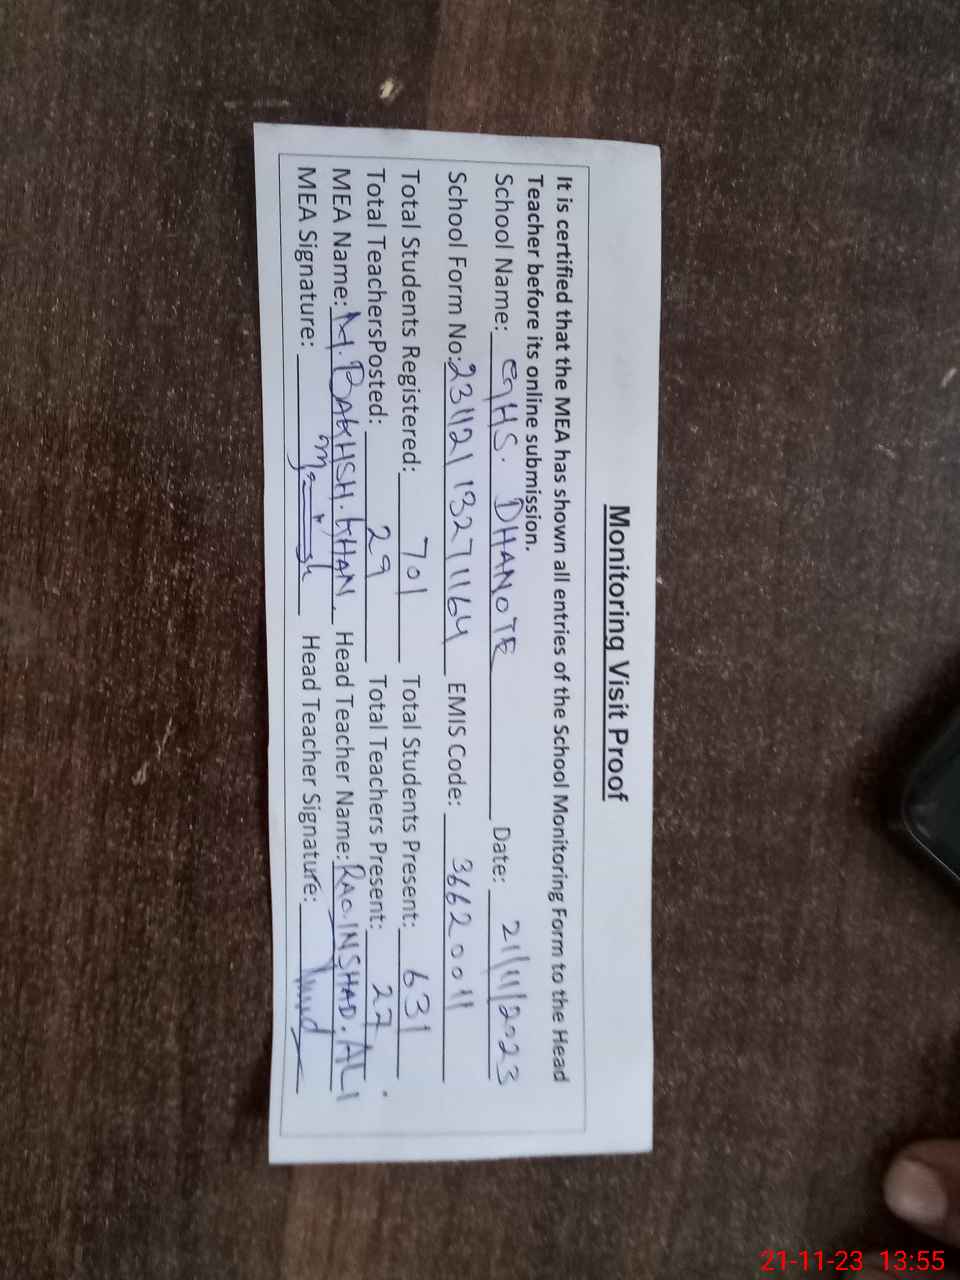 Monitoring Visit Proof
It is certified that the MEA has shown all entries of the School Monitoring Form to the Head
Teacher before its online submission.
School Name: GHS. DHANOTE Date: 21/11/2023
School Form No: 23112113271164 EMIS Code: 36620011
Total Students Registered: 701 Total Students Present: 631
Total TeachersPosted: 29 Total Teachers Present: 27
MEA Name: M. BAKHSH. KHAN Head Teacher Name: RAO. INSHAD. ALI
MEA Signature: Head Teacher Signature:
21-11-23 13:55